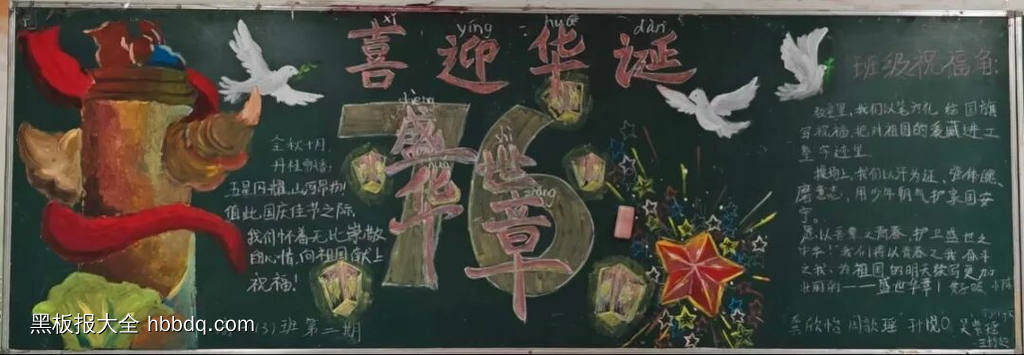 xǐ yíng huá dàn
喜迎华诞
76
盛世
华章
金秋十月,
丹桂飘香,
五星闪耀,山河昂扬!
值此国庆佳节之际,
我们怀着无比崇敬
的心情,向祖国献上
祝福!
(3)班 第二期
班级祝福角:
教室里,我们以笔为礼,给国旗
写祝福,把对祖国的爱藏进工
整字迹里
操场上,我们以汗为证,强体魄、
磨意志,用少年朝气护家国安
宁。
愿以吾辈之青春,护卫盛世之
中华!我们将以青春之我,奋斗
之我,为祖国的明天续写更加
——盛世华章!
黑板报大全 hbbdq.com